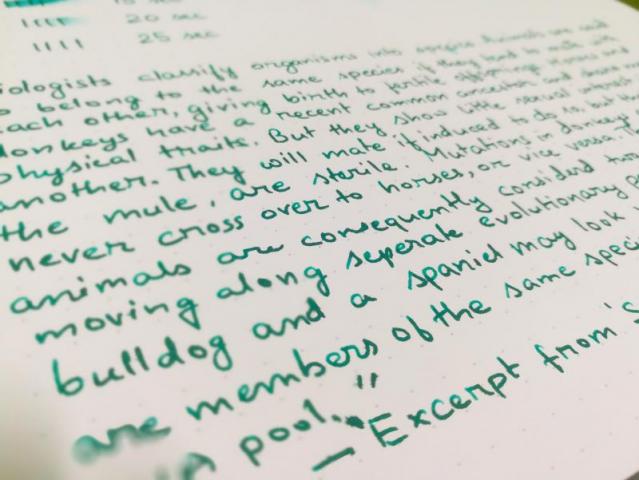 15 sec
1111 20 sec
1111 25 sec
iologists classify organisms into species. Animals are said
o belong to the same species if they tend to mate with
each other, giving birth to fertile offspring. Horses and
donkeys have a recent common ancestor and share
physical traits. But they show little sexual interest
another. They will mate if induced to do so, but
the mule, are sterile. Mutations in donkey
never cross over to horses, or vice versa.
animals are consequently considerd
moving along seperate evolutionary
bulldog and a spaniel may look
are members of the same speci
pool."
— Excerpt from 'S